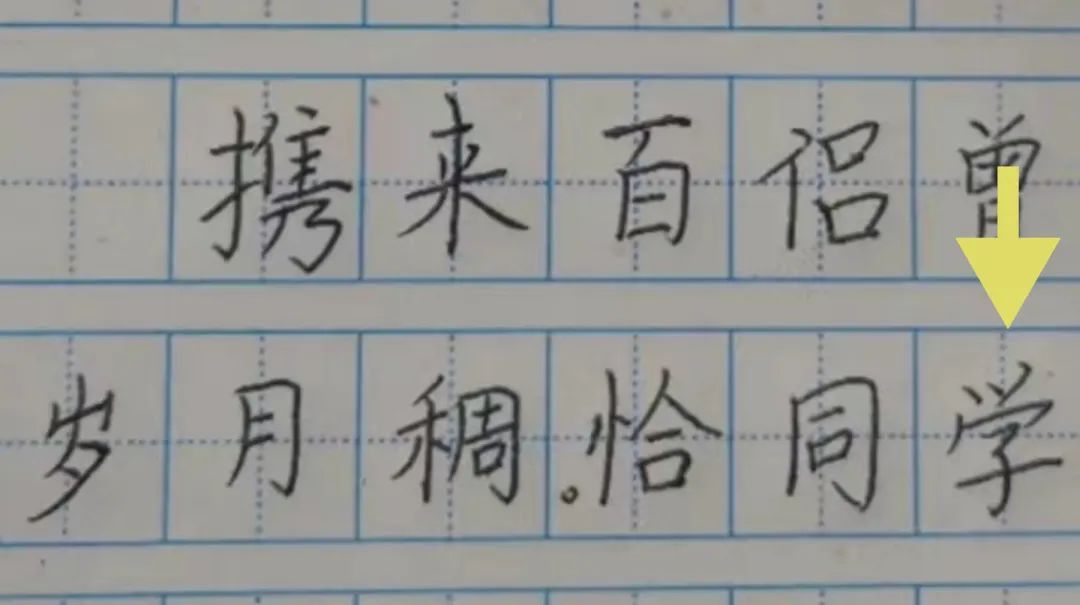 携来百侣曾
岁月稠。恰同学